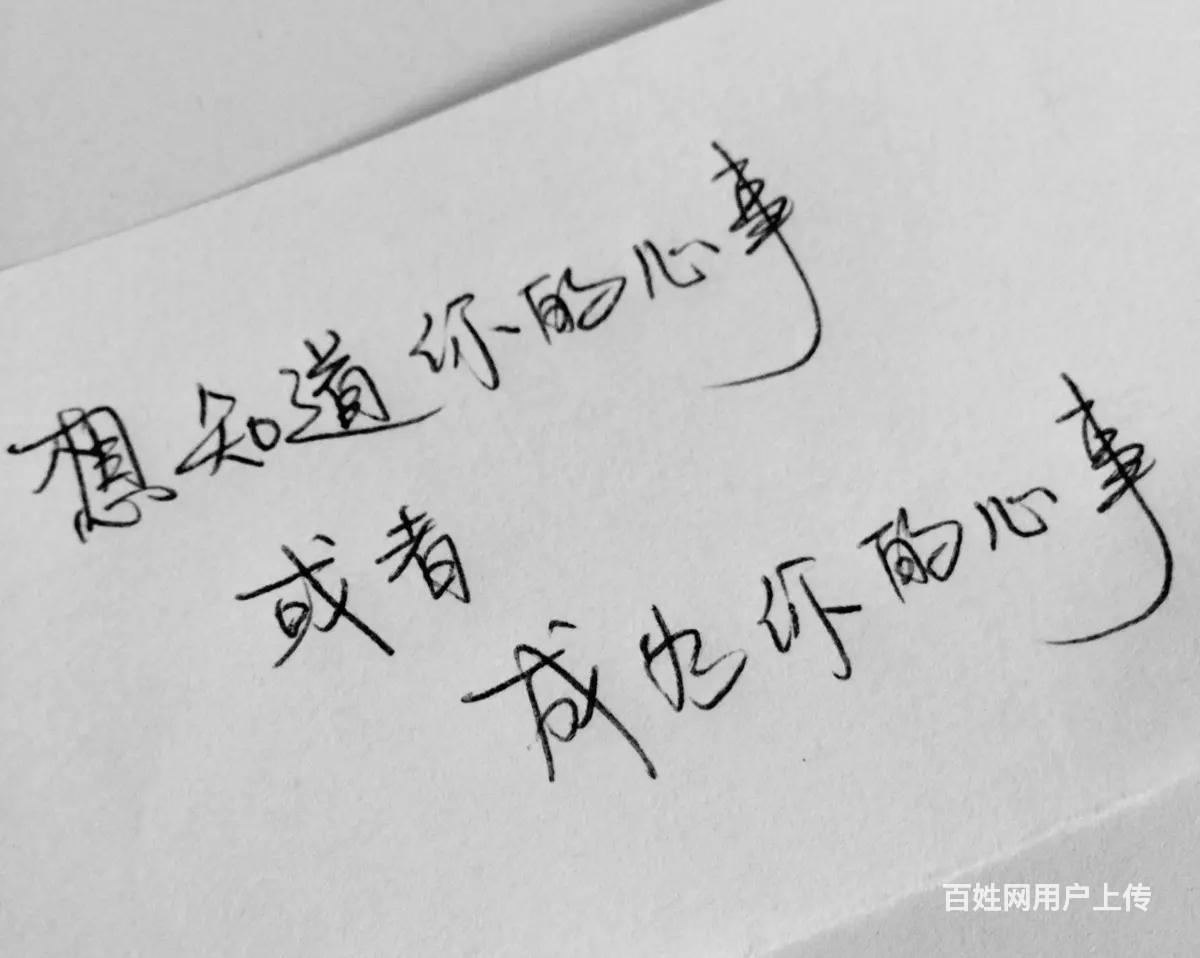 想知道你的心事
或者
成为你的心事
百姓网用户上传